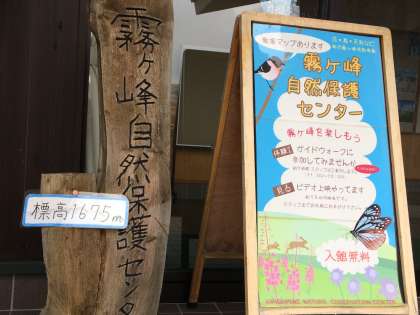 霧ヶ峰自然保護センター
標高1675m
散策マップあります
霧ヶ峰
自然保護
センター
霧ヶ峰を楽しもう
体験
ガイドウォークに
参加してみませんか
見る
ビデオ上映やってます
入館無料
KIRIGAMINE NATURE CONSERVATION CENTER